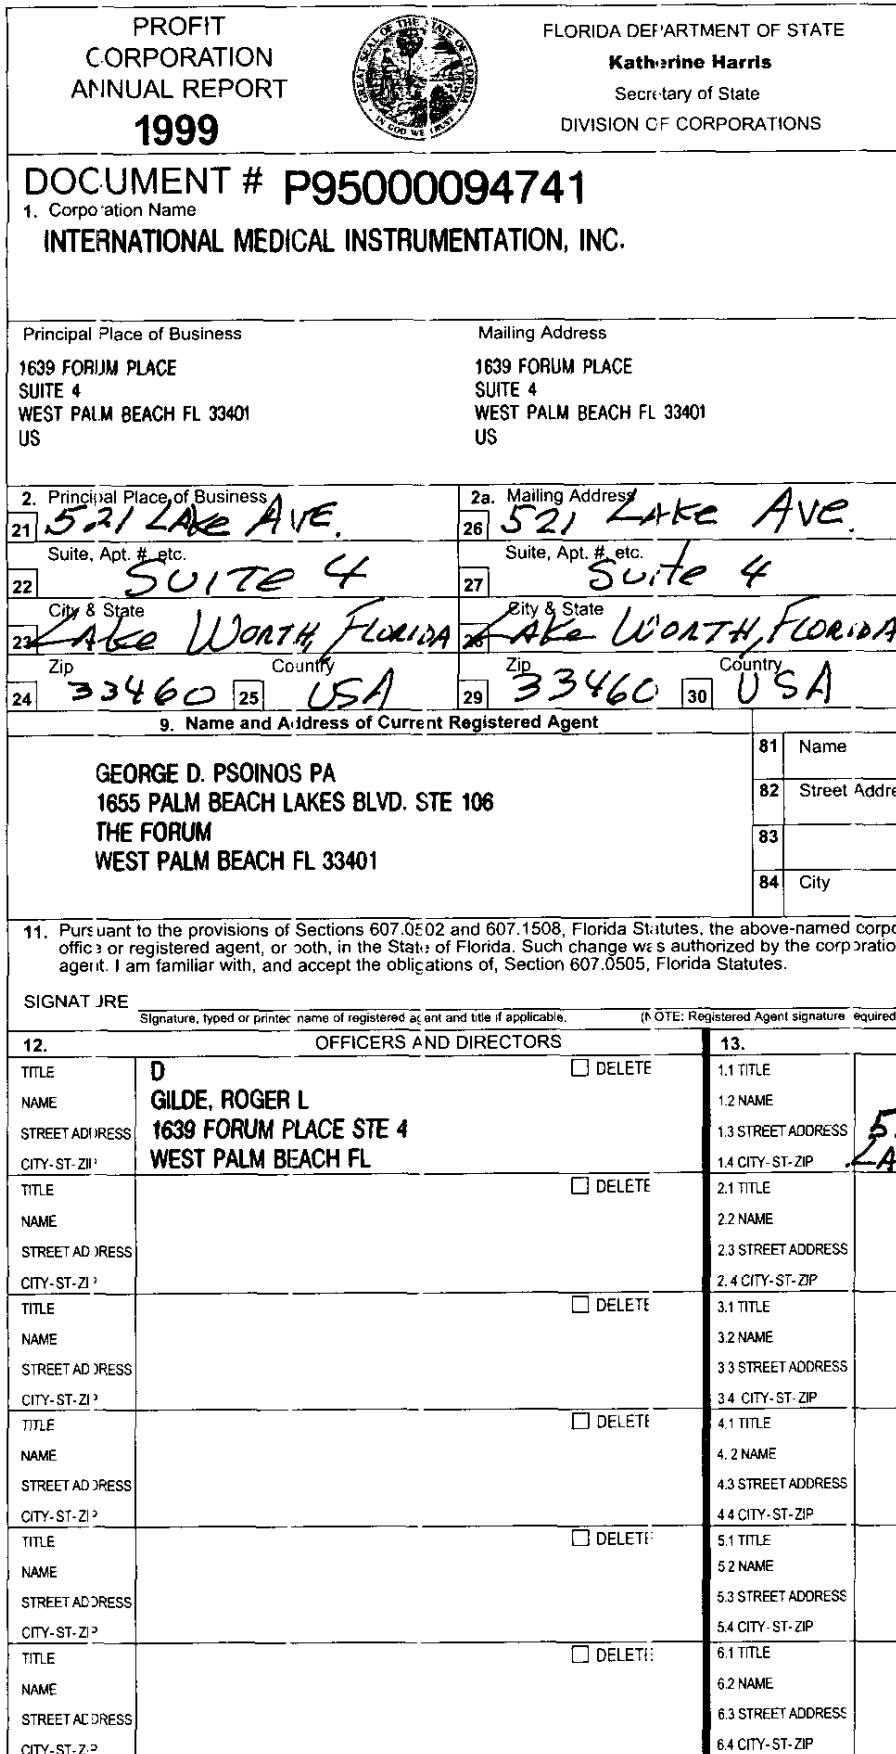 PROFIT
CORPORATION
ANNUAL REPORT
1999
GREAT SEAL OF THE STATE OF FLORIDA
IN GOD WE TRUST
FLORIDA DEPARTMENT OF STATE
Katherine Harris
Secretary of State
DIVISION OF CORPORATIONS
DOCUMENT # P95000094741
1. Corporation Name
INTERNATIONAL MEDICAL INSTRUMENTATION, INC.
Principal Place of Business
1639 FORUM PLACE
SUITE 4
WEST PALM BEACH FL 33401
US
Mailing Address
1639 FORUM PLACE
SUITE 4
WEST PALM BEACH FL 33401
US
2. Principal Place of Business
21 521 LAKE AVE.
Suite, Apt. #, etc.
22 SUITE 4
City & State
23 LAKE WORTH, FLORIDA
Zip Country
24 33460 25 USA
2a. Mailing Address
26 521 LAKE AVE.
Suite, Apt. #, etc.
27 Suite 4
City & State
28 LAKE WORTH, FLORIDA
Zip Country
29 33460 30 USA
9. Name and Address of Current Registered Agent
GEORGE D. PSOINOS PA
1655 PALM BEACH LAKES BLVD. STE 106
THE FORUM
WEST PALM BEACH FL 33401
81 Name
82 Street Addre
83
84 City
11. Pursuant to the provisions of Sections 607.0502 and 607.1508, Florida Statutes, the above-named corpo
office or registered agent, or both, in the State of Florida. Such change was authorized by the corporatio
agent. I am familiar with, and accept the obligations of, Section 607.0505, Florida Statutes.
SIGNATURE
Signature, typed or printed name of registered agent and title if applicable. (NOTE: Registered Agent signature required
12. OFFICERS AND DIRECTORS 13.
TITLE D DELETE 1.1 TITLE
NAME GILDE, ROGER L 1.2 NAME
STREET ADDRESS 1639 FORUM PLACE STE 4 1.3 STREET ADDRESS 5
CITY-ST-ZIP WEST PALM BEACH FL 1.4 CITY-ST-ZIP LA
TITLE DELETE 2.1 TITLE
NAME 2.2 NAME
STREET ADDRESS 2.3 STREET ADDRESS
CITY-ST-ZIP 2.4 CITY-ST-ZIP
TITLE DELETE 3.1 TITLE
NAME 3.2 NAME
STREET ADDRESS 3 3 STREET ADDRESS
CITY-ST-ZIP 3 4 CITY-ST-ZIP
TITLE DELETE 4.1 TITLE
NAME 4.2 NAME
STREET ADDRESS 4.3 STREET ADDRESS
CITY-ST-ZIP 4 4 CITY-ST-ZIP
TITLE DELETE 5.1 TITLE
NAME 5 2 NAME
STREET ADDRESS 5.3 STREET ADDRESS
CITY-ST-ZIP 5.4 CITY-ST-ZIP
TITLE DELETE 6.1 TITLE
NAME 6.2 NAME
STREET ADDRESS 6.3 STREET ADDRESS
CITY-ST-ZIP 6.4 CITY-ST-ZIP